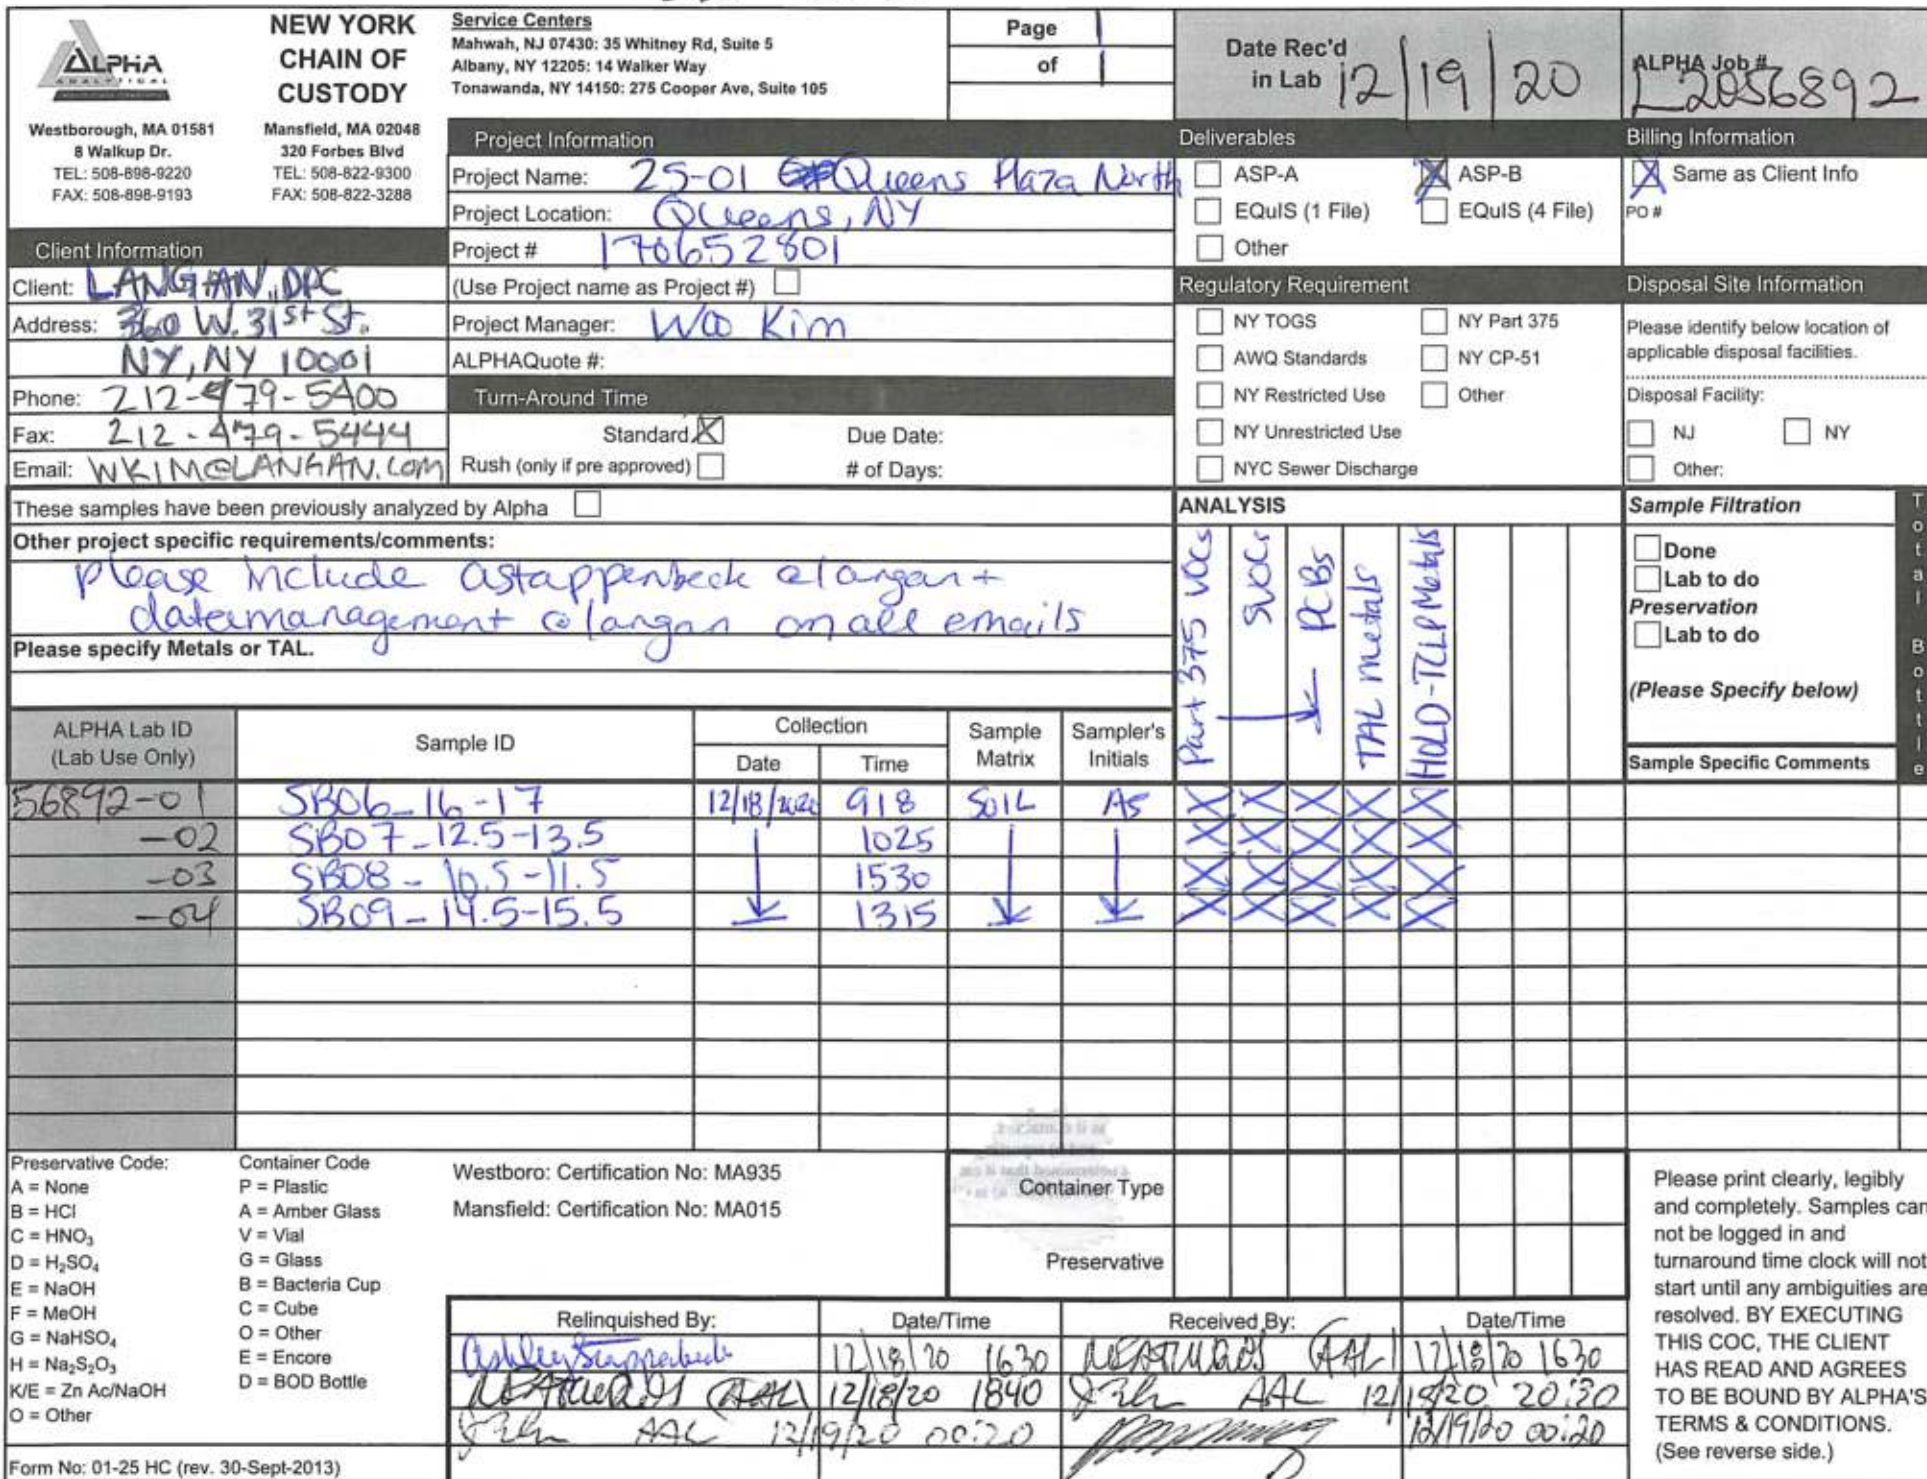 ALPHA
ANALYTICAL
NEW YORK
CHAIN OF
CUSTODY
Westborough, MA 01581
8 Walkup Dr.
TEL: 508-898-9220
FAX: 508-898-9193
Mansfield, MA 02048
320 Forbes Blvd
TEL: 508-822-9300
FAX: 508-822-3288
Service Centers
Mahwah, NJ 07430: 35 Whitney Rd, Suite 5
Albany, NY 12205: 14 Walker Way
Tonawanda, NY 14150: 275 Cooper Ave, Suite 105
Page 1
of 1
Date Rec'd
in Lab 12/19/20
ALPHA Job #
L2056892
Client Information
Client: LANGAN, DPC
Address: 360 W. 31st St.
NY, NY 10001
Phone: 212-479-5400
Fax: 212-479-5444
Email: WKIM@LANGAN.COM
Project Information
Project Name: 25-01 Queens Plaza North
Project Location: Queens, NY
Project # 170652801
(Use Project name as Project #)
Project Manager: Woo Kim
ALPHAQuote #:
Turn-Around Time
Standard X Due Date:
Rush (only if pre approved) # of Days:
Deliverables
ASP-A X ASP-B
EQuIS (1 File) EQuIS (4 File)
Other
Regulatory Requirement
NY TOGS NY Part 375
AWQ Standards NY CP-51
NY Restricted Use Other
NY Unrestricted Use
NYC Sewer Discharge
Billing Information
X Same as Client Info
PO #
Disposal Site Information
Please identify below location of
applicable disposal facilities.
Disposal Facility:
NJ NY
Other:
These samples have been previously analyzed by Alpha
Other project specific requirements/comments:
Please include astappenbeck@langan +
datamanagement@langan on all emails
Please specify Metals or TAL.
ANALYSIS
Part 375 VOCs
SVOCs
PCBs
TAL metals
HOLD-TCLP Metals
Sample Filtration
Done
Lab to do
Preservation
Lab to do
(Please Specify below)
Total Bottle
ALPHA Lab ID
(Lab Use Only)
Sample ID
Collection
Date Time
Sample
Matrix
Sampler's
Initials
Sample Specific Comments
56892-01 SB06_16-17 12/18/2020 918 SOIL AS X X X X X
-02 SB07_12.5-13.5 1025 X X X X X
-03 SB08_10.5-11.5 1530 X X X X X
-04 SB09_14.5-15.5 1315 X X X X X
Preservative Code:
A = None
B = HCl
C = HNO₃
D = H₂SO₄
E = NaOH
F = MeOH
G = NaHSO₄
H = Na₂S₂O₃
K/E = Zn Ac/NaOH
O = Other
Container Code
P = Plastic
A = Amber Glass
V = Vial
G = Glass
B = Bacteria Cup
C = Cube
O = Other
E = Encore
D = BOD Bottle
Westboro: Certification No: MA935
Mansfield: Certification No: MA015
Container Type
Preservative
Relinquished By: Date/Time Received By: Date/Time
Ashley Stappenbeck 12/18/20 1630 (AAL) 12/18/20 1630
(AAL) 12/18/20 1840 AAL 12/18/20 20:30
AAL 12/19/20 00:20 12/19/20 00:20
Please print clearly, legibly
and completely. Samples can
not be logged in and
turnaround time clock will not
start until any ambiguities are
resolved. BY EXECUTING
THIS COC, THE CLIENT
HAS READ AND AGREES
TO BE BOUND BY ALPHA'S
TERMS & CONDITIONS.
(See reverse side.)
Form No: 01-25 HC (rev. 30-Sept-2013)